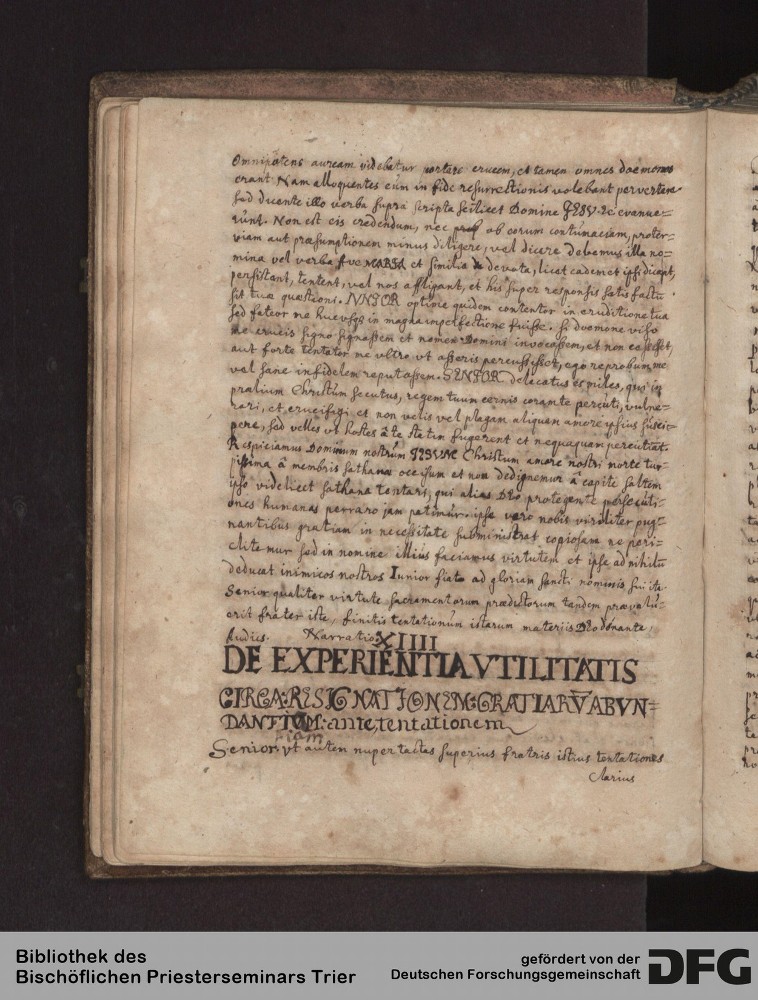 Omnipotens auream videbatur portare crucem, et tamen omnes daemones
erant. Nam alloquentes eum in fide resurrectionis volebant pervertere
sed dicente illo verba supra scripta scilicet Domine JESV. &c evanue-
runt. Non est eis credendum, nec ob eorum contumaciam, proter-
viam aut præsumptionem minus diligere, vel dicere debemus illa no-
mina vel verba Ave MARIA et similia devota, licet eadem et ipsi dicant,
persistant, tentent, vel nos affligant, et his super responsis satis factu
sit tuæ quæstioni. JVNIOR optime quidem contentor in eruditione tua
sed fateor me hucusq; in magna imperfectione fuisse. si daemone viso
me crucis signo signassem et nomen Domini invocassem, et non cessisset,
aut forte tentator me ultro ut asseris percussisset, ego reprobum me
vel sane infidelem reputassem. SENIOR delicatus es miles, qui in
prælium Christum secutus, regem tuum cernis coram te percuti, vulne-
rari, et crucifigi et non velis vel plagam aliquam amore ipsius susci-
pere, sed velles ut hostes â te statim fugerent et nequaquam percutiat.
Respiciamus Dominum nostrum JESVM Christum amore nostri morte tur-
pissima â membris sathanæ occisum et non dedignemur â capite saltem
ipso videlicet sathana tentari, qui alias Deo protegente persecuti-
ones humanas perraro jam patimur. ipse vero nobis viriliter pug-
nantibus gratiam in necessitate subministrat copiosam ne peri-
clitemur sed in nomine illius faciamus virtutem et ipse ad nihilu
deducat inimicos nostros Junior fiat ad gloriam sancti nominis sui ita
Senior qualiter virtute sacramentorum prædictorum tandem prævalu-
erit frater iste, finitis tentationum istarum materiis Deo donante,
Audies. Narratio XIIII
DE EXPERIENTIA VTILITATIS
CIRCA RESIGNATIONEM GRATIARV̄ ABVN=
DANTIVM: ante, tentationem
iam
Senior. ut autem nuper tactas superius fratris istius tentationes
clarius
Bibliothek des
Bischöflichen Priesterseminars Trier
gefördert von der
Deutschen Forschungsgemeinschaft
DFG